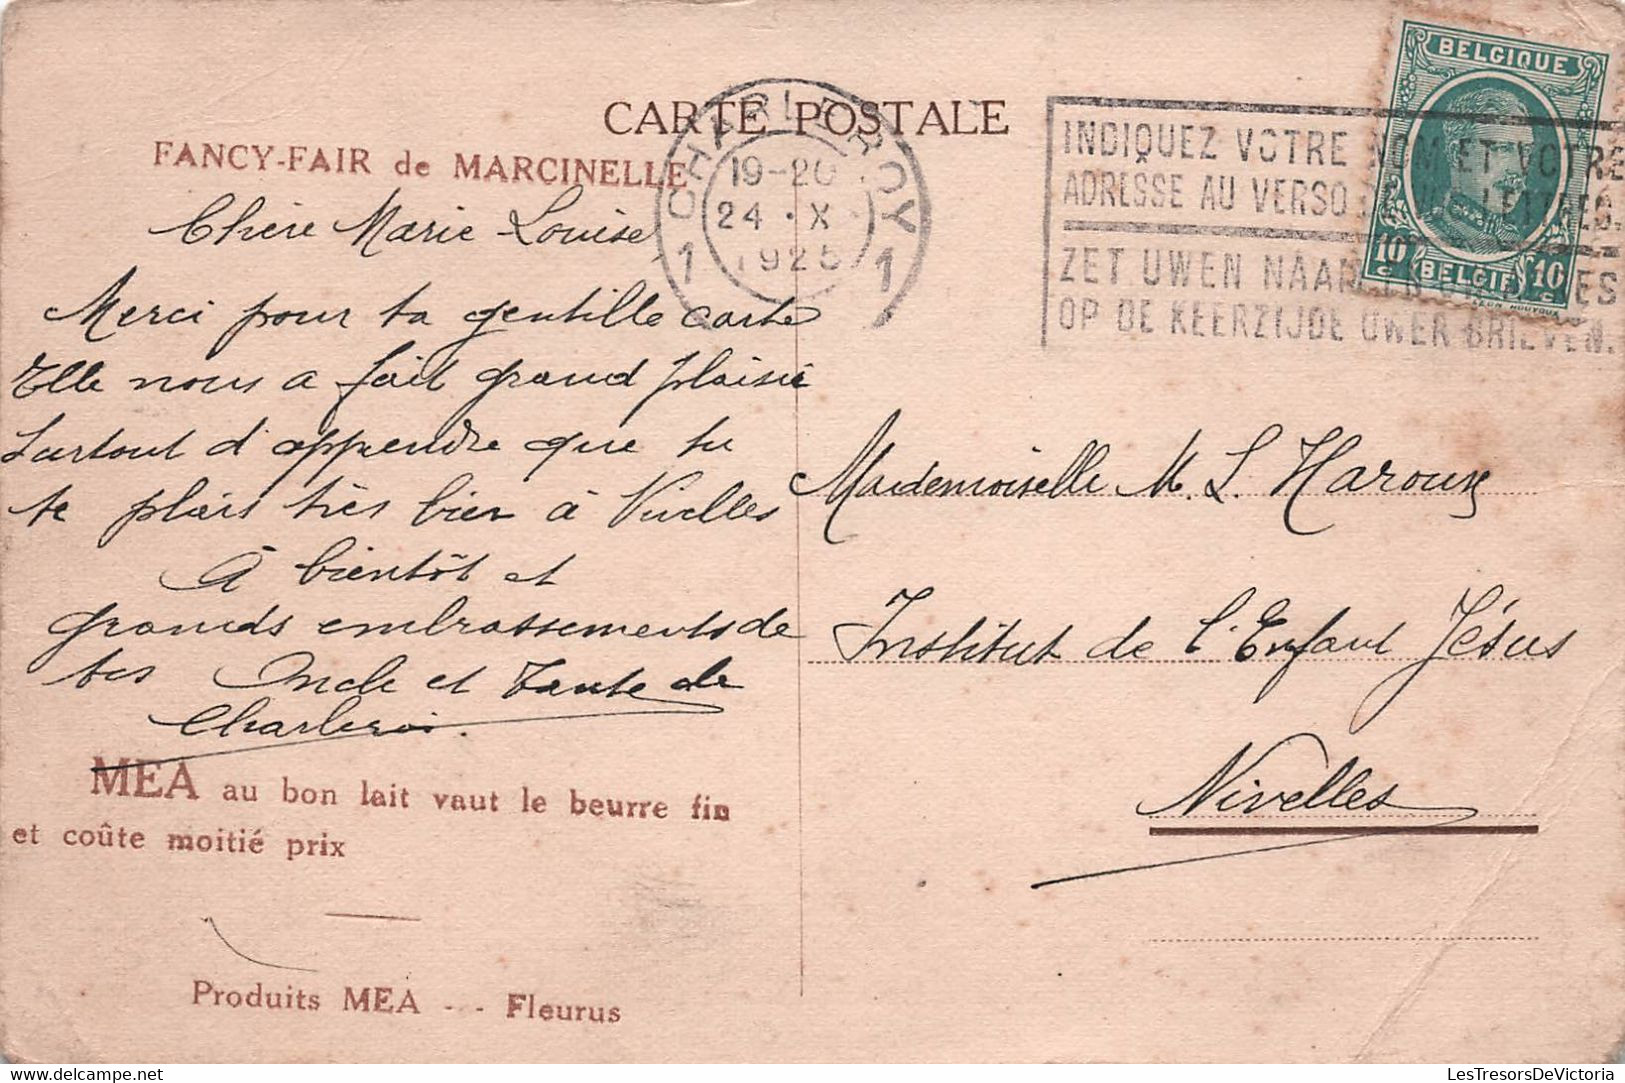 CARTE POSTALE
FANCY-FAIR de MARCINELLE
Chère Marie Louise
Merci pour ta gentille carte
Elle nous a fait grand plaisir
Surtout d'apprendre que tu
te plais très bien à Nivelles
A bientôt et
grands embrassements de
tes Oncle et Tante de
Charleroi.
MEA au bon lait vaut le beurre fin
et coûte moitié prix
Produits MEA - - - Fleurus
CHARLEROY
1 1
19-20
24 · X ·
1925
INDIQUEZ VOTRE NOM ET VOTRE
ADRESSE AU VERSO DE VOS LETTRES.
ZET UWEN NAAM EN ADRES
OP DE KEERZIJDE UWER BRIEVEN.
BELGIQUE
10 c BELGIE 10 c
Mademoiselle M. L. Haroux
Institut de l'Enfant Jésus
Nivelles
LesTresorsDeVictoria